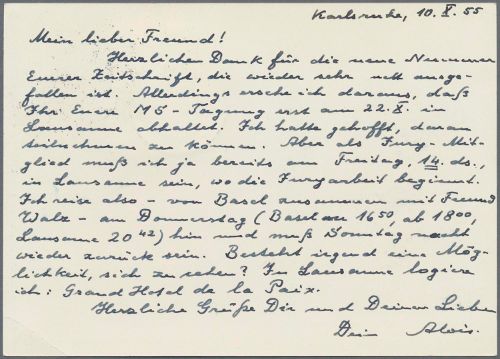 Karlsruhe, 10. X. 55
Mein lieber Freund!
Herzlichen Dank für die neue Nummer
Eurer Zeitschrift, die wieder sehr nett ausge-
fallen ist. Allerdings ersehe ich daraus, daß
Ihr Eure MS-Tagung erst am 22. X. in
Lausanne abhaltet. Ich hatte gehofft, daran
teilnehmen zu können. Aber als Jury-Mit-
glied muß ich ja bereits am Freitag, 14. ds.,
in Lausanne sein, wo die Juryarbeit beginnt.
Ich reise also - von Basel zusammen mit Freund
Walz - am Donnerstag (Basel an 16 50, ab 18 00,
Lausanne 20 42) hin und muß Sonntag nacht
wieder zurück sein. Besteht irgend eine Mög-
lichkeit, sich zu sehen? In Lausanne logiere
ich: Grand Hotel de la Paix.
Herzliche Grüße Dir und Deinen Lieben
Dein Alois.